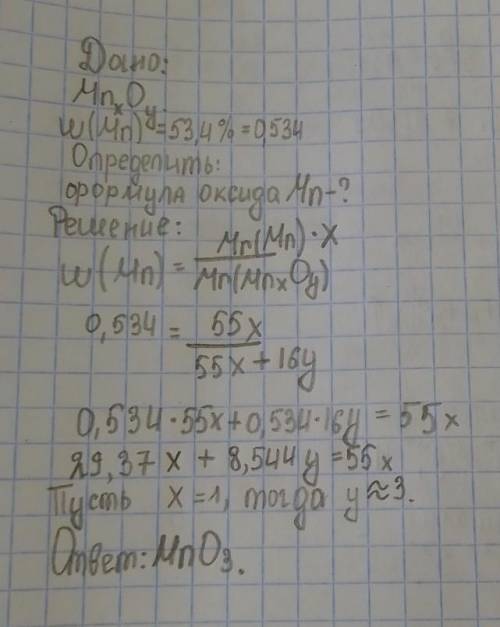 Дано:
MnxOy
w(Mn)=53,4%=0,534
Определить:
формула оксида Mn-?
Решение:
w(Mn) = Mr(Mn)·x / Mr(MnxOy)
0,534 = 55x / 55x + 16y
0,534·55x+0,534·16y = 55x
29,37x + 8,544y = 55x
Пусть x=1, тогда y≈3.
Ответ: MnO3.